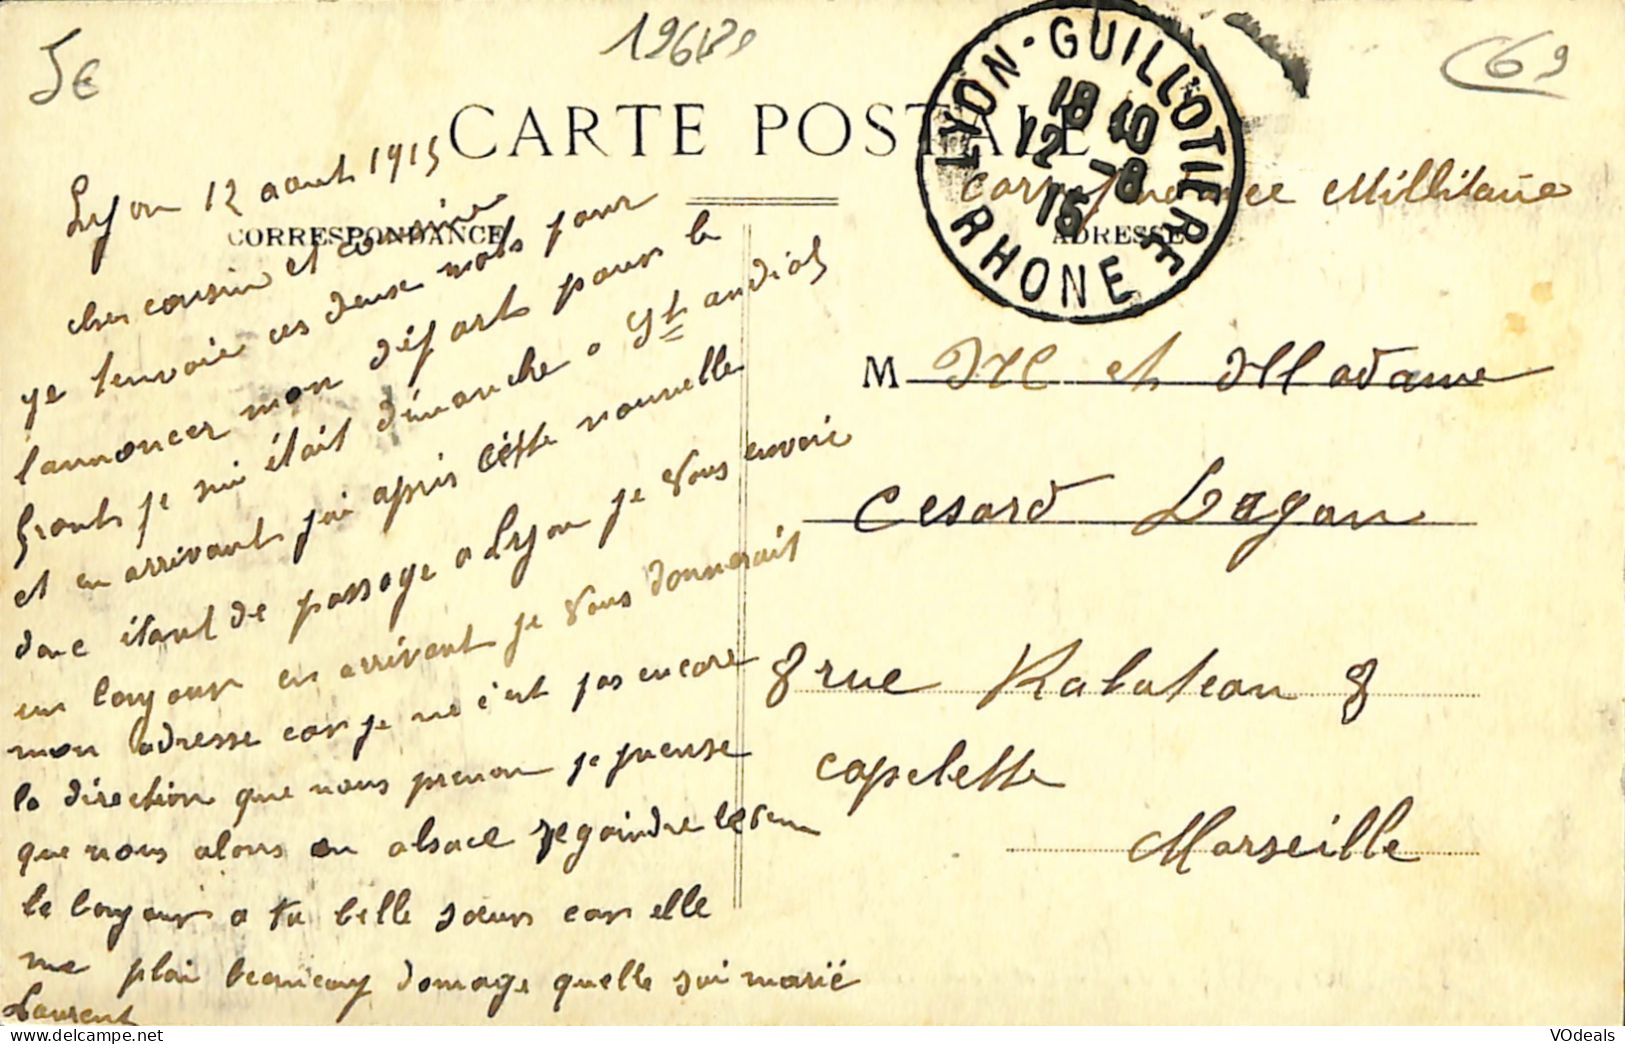 5€
C69
CARTE POSTALE
CORRESPONDANCE
ADRESSE
LYON-GUILLOTIERE
18 40
12 -8
15
RHONE
Lyon 12 aout 1915
cher cousin et cousine
ge tenvoie ces deux mots pour
lannoncer mon départ pour le
front je sui était dimanche a St andiol
et en arrivant jai apris cette nouvelle
donc étant de passage a Lyon je vous envoie
un bonjour en arrivent je vous donnerait
mon adresse car je ne c'est pas encore
la direction que nous prenon je pense
que nous alons en alsace regoindre
le bonjour a ta belle sœur car elle
me plai beaucoup domage quelle soi marië
Laurent
Millitaire
M M et Madame
Cesard Lagan
8 rue 8
capelette
Marseille
VOdeals